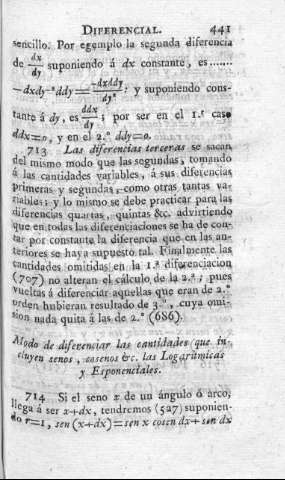 DIFERENCIAL. 441
sencillo. Por egemplo la segunda diferencia
de dx/dy suponiendo á dx constante, es......
—dxdy⁻²ddy=—dxddy/dy²; y suponiendo cons-
tante á dy, es ddx/dy; por ser en el 1.º caso
ddx=0, y en el 2.º ddy=0.
713 Las diferencias terceras se sacan
del mismo modo que las segundas, tomando
á las cantidades variables, á sus diferencias
primeras y segundas, como otras tantas va-
riables; y lo mismo se debe practicar para las
diferencias quartas, quintas &c. advirtiendo
que en todas las diferenciaciones se ha de con-
tar por constante la diferencia que en las an-
teriores se haya supuesto tal. Finalmente las
cantidades omitidas en la 1.ª diferenciacion
(707) no alteran el cálculo de la 2.ª; pues
vueltas á diferenciar aquellas que eran de 2.º
orden hubieran resultado de 3.º, cuya omi-
sion nada quita á las de 2.º (686).
Modo de diferenciar las cantidades que in-
cluyen senos, cosenos &c. las Logarítmicas
y Esponenciales.
714 Si el seno x de un ángulo ó arco,
llega á ser x+dx, tendremos (527) suponien-
do r=1, sen (x+dx)=sen x cosen dx+sen dx